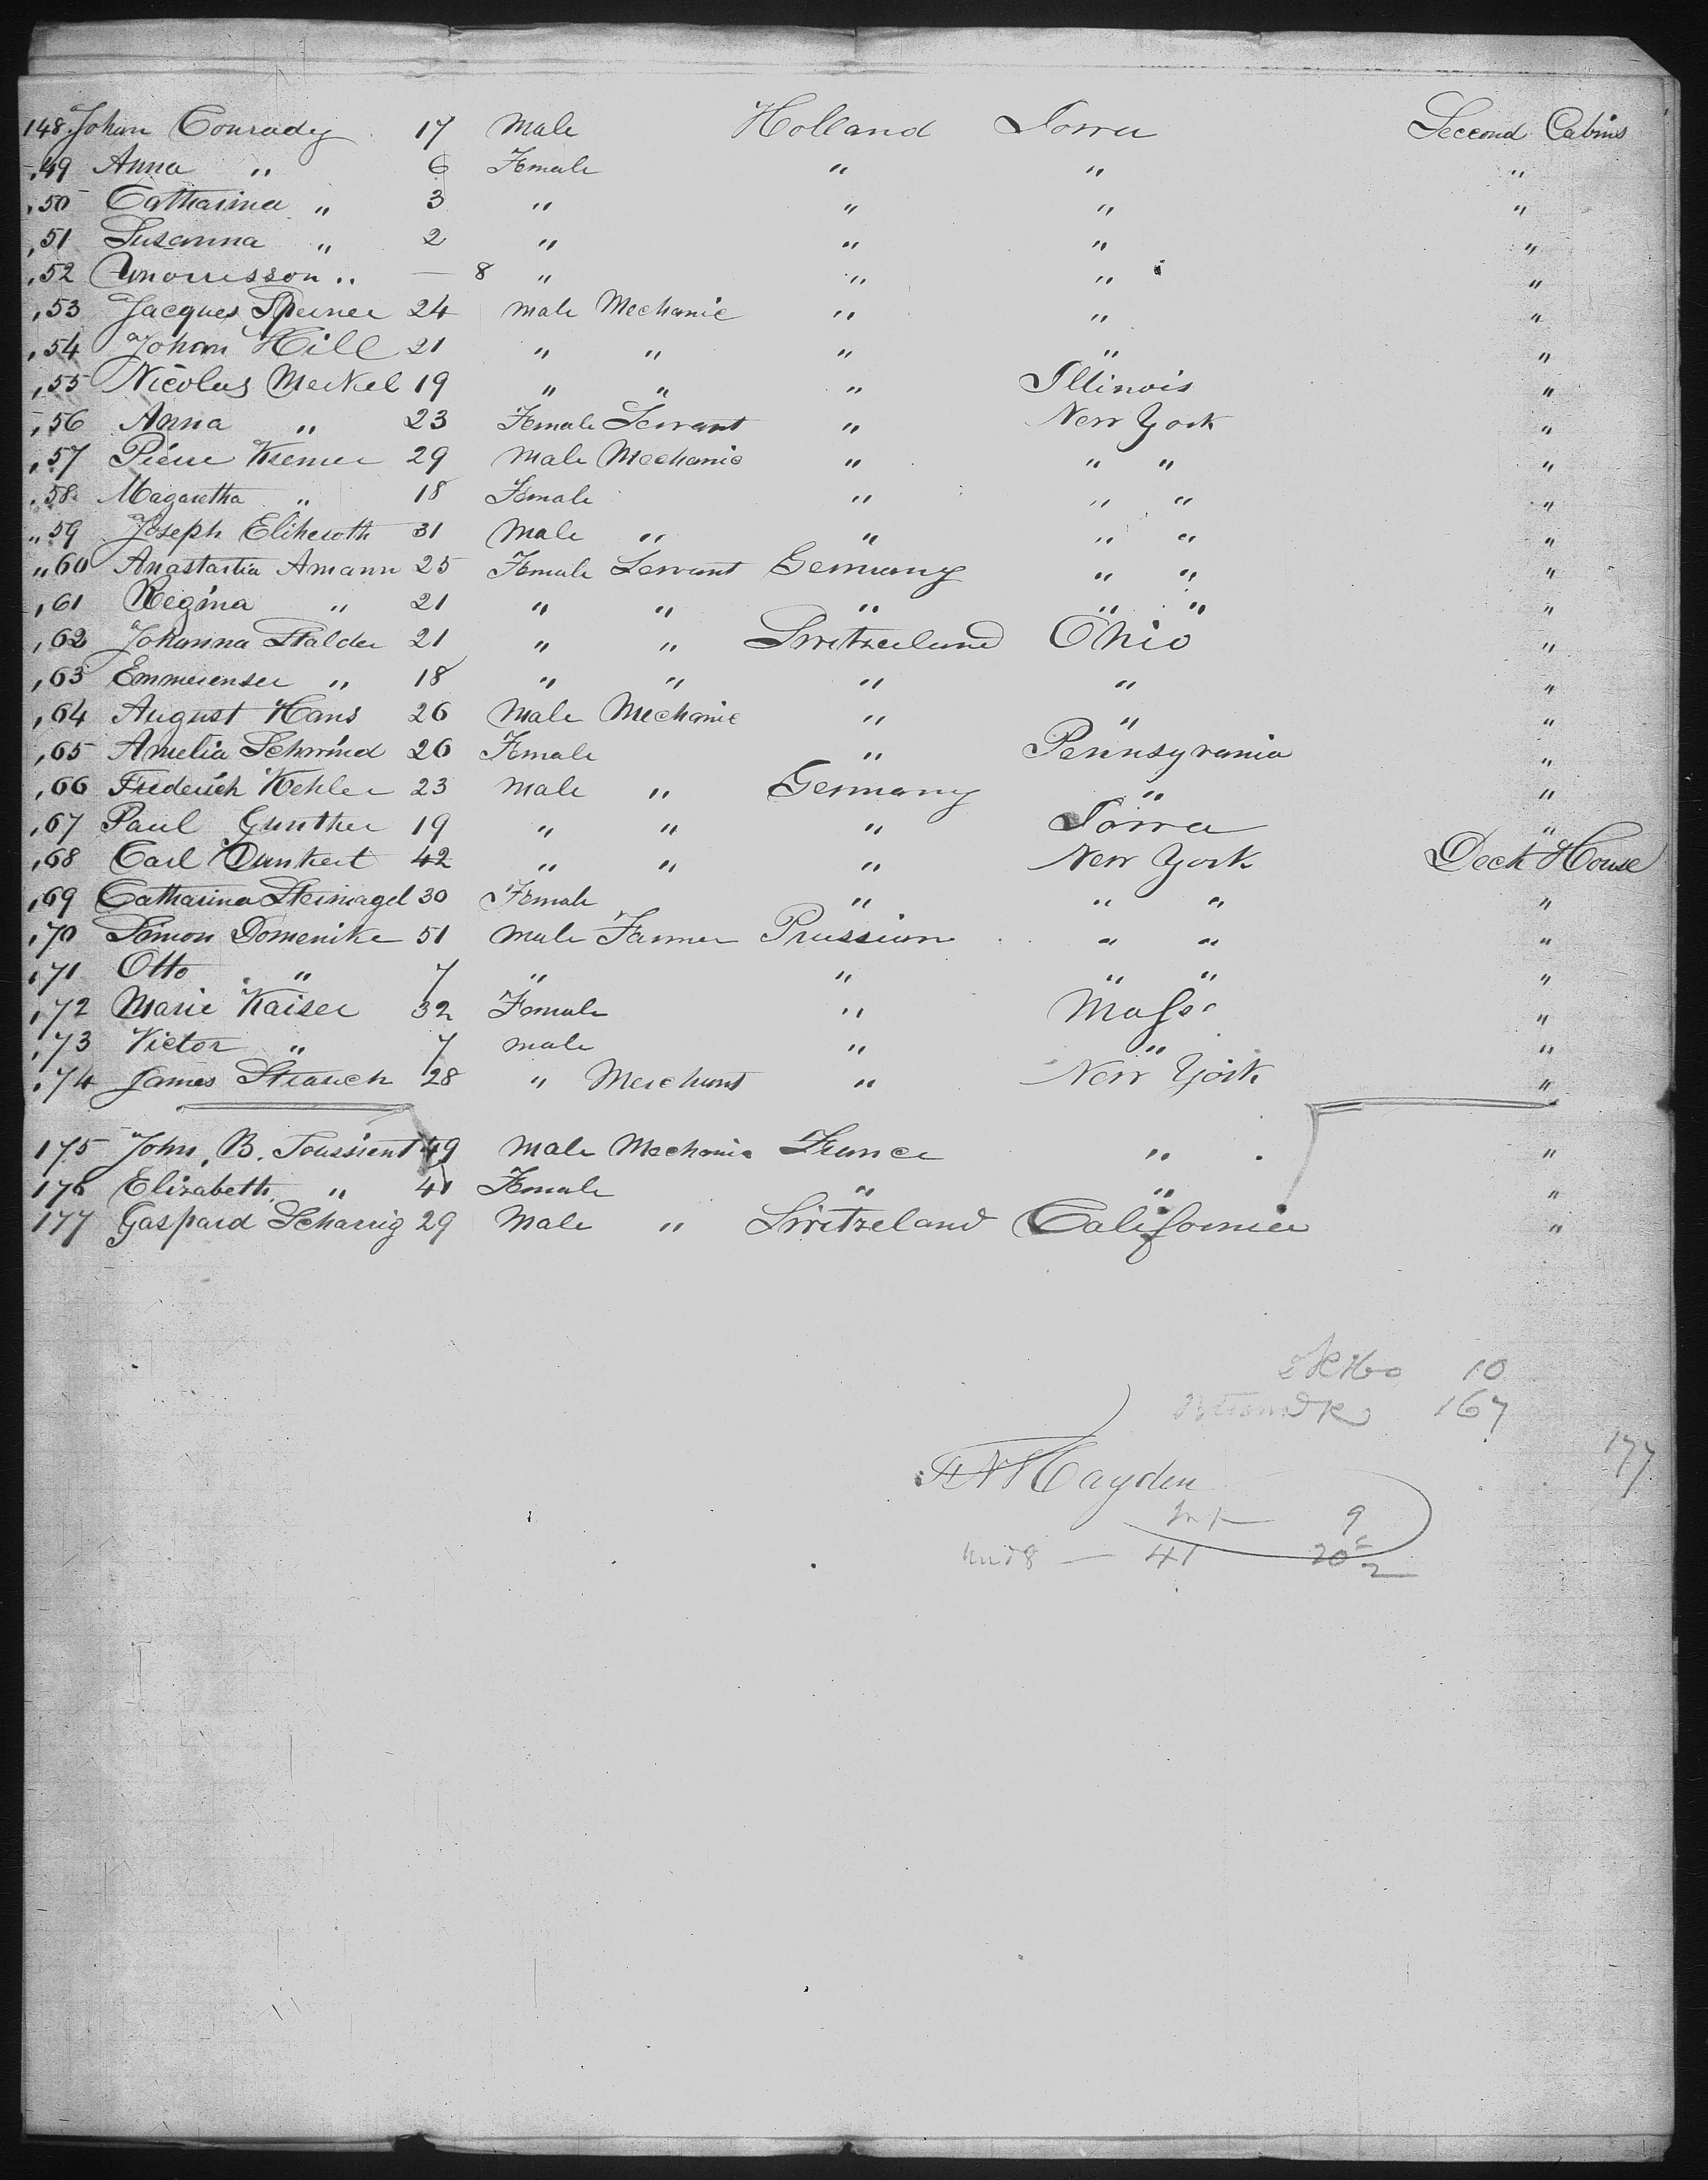 148 Johan Conrady 17 Male Holland Iowa Second Cabins
,49 Anna " 6 Female " " "
,50 Catharina " 3 " " " "
,51 Susanna " 2 " " " "
,52 Unorrisson " — 8 " " " "
,53 Jacques Sperner 24 male Mechanic " " "
,54 Johan Hill 21 " " " " "
,55 Nicolas Merkel 19 " " " Illinois "
,56 Anna " 23 Female Servant " New York "
,57 Pierre Kremer 29 Male Mechanic " " " "
,58 Magaretha " 18 Female " " " "
"59 Joseph Elikeroth 31 Male " " " " "
"60 Anastartia Amann 25 Female Servant Germany " " "
,61 Regina " 21 " " " " " "
,62 Johanna Stalder 21 " " Switzerland Ohio "
,63 Emmerenser " 18 " " " " "
,64 August Hans 26 Male Mechanic " " "
,65 Amelia Schwind 26 Female " Pennsyvania "
,66 Frederich Kehler 23 Male " Germany " "
,67 Paul Gunther 19 " " " Iowa "
,68 Carl Dunkert 42 " " " New York Deck House
,69 Catharina Steinagel 30 Female " " " "
,70 Simon Domenike 51 Male Farmer Prussian " " "
,71 Otto " 7 " " " " "
,72 Marie Kaiser 32 Female " Mass "
,73 Victor " 7 male " " "
,74 James Strauch 28 " Merchant " New York "
175 John, B. Toussient 49 Male Mechanic France " "
176 Elizabeth " 41 Female " " "
177 Gaspard Scharrig 29 Male " Switzeland California "
10
167
177
Hayden
Inf 9
Und 8 — 41 20